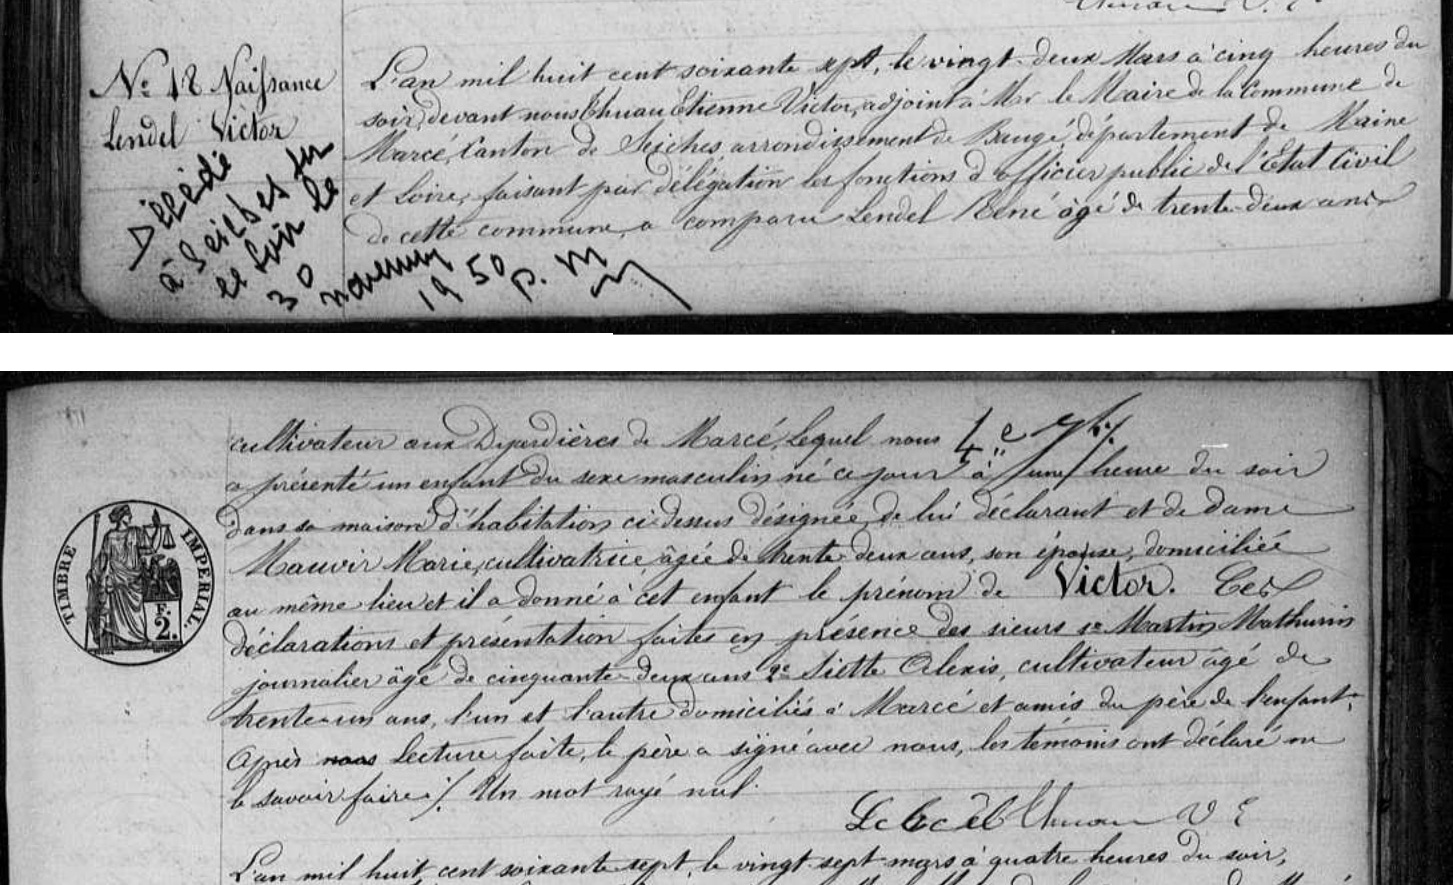 Nº 18 Naissance
Lendel Victor
Décédé
à Seiches sur
le Loir le
30 novembre
1950 p. m
L'an mil huit cent soixante sept, le vingt-deux Mars à cinq heures du
soir, devant nous Thuau Etienne Victor, adjoint à Mr le Maire de la Commune de
Marcé, Canton de Seiches arrondissement de Baugé, département de Maine
et Loire, faisant par délégation les fonctions d'officier public de l'Etat Civil
de cette commune, a comparu Lendel René âgé de trente-deux ans
cultivateur aux de Marcé, Lequel nous
a présenté un enfant du sexe masculin né ce jour à une heure du soir
dans sa maison d'habitation ci-dessus désignée, de lui déclarant et de dame
Mauvir Marie, cultivatrice âgée de trente-deux ans, son épouse, domiciliée
au même lieu et il a donné à cet enfant le prénom de Victor. Ces
déclarations et présentation faites en présence des sieurs 1º Martin Mathurin
journalier âgé de cinquante-deux ans 2º Siette Alexis, cultivateur âgé de
trente-un ans, l'un et l'autre domiciliés à Marcé et amis du père de l'enfant.
Après nous Lecture faite, le père a signé avec nous, les témoins ont déclaré ne
le savoir faire ./. Un mot rayé nul.
Thuau V E
L'an mil huit cent soixante sept, le vingt-sept mars à quatre heures du soir,
TIMBRE IMPERIAL.
F.
2.